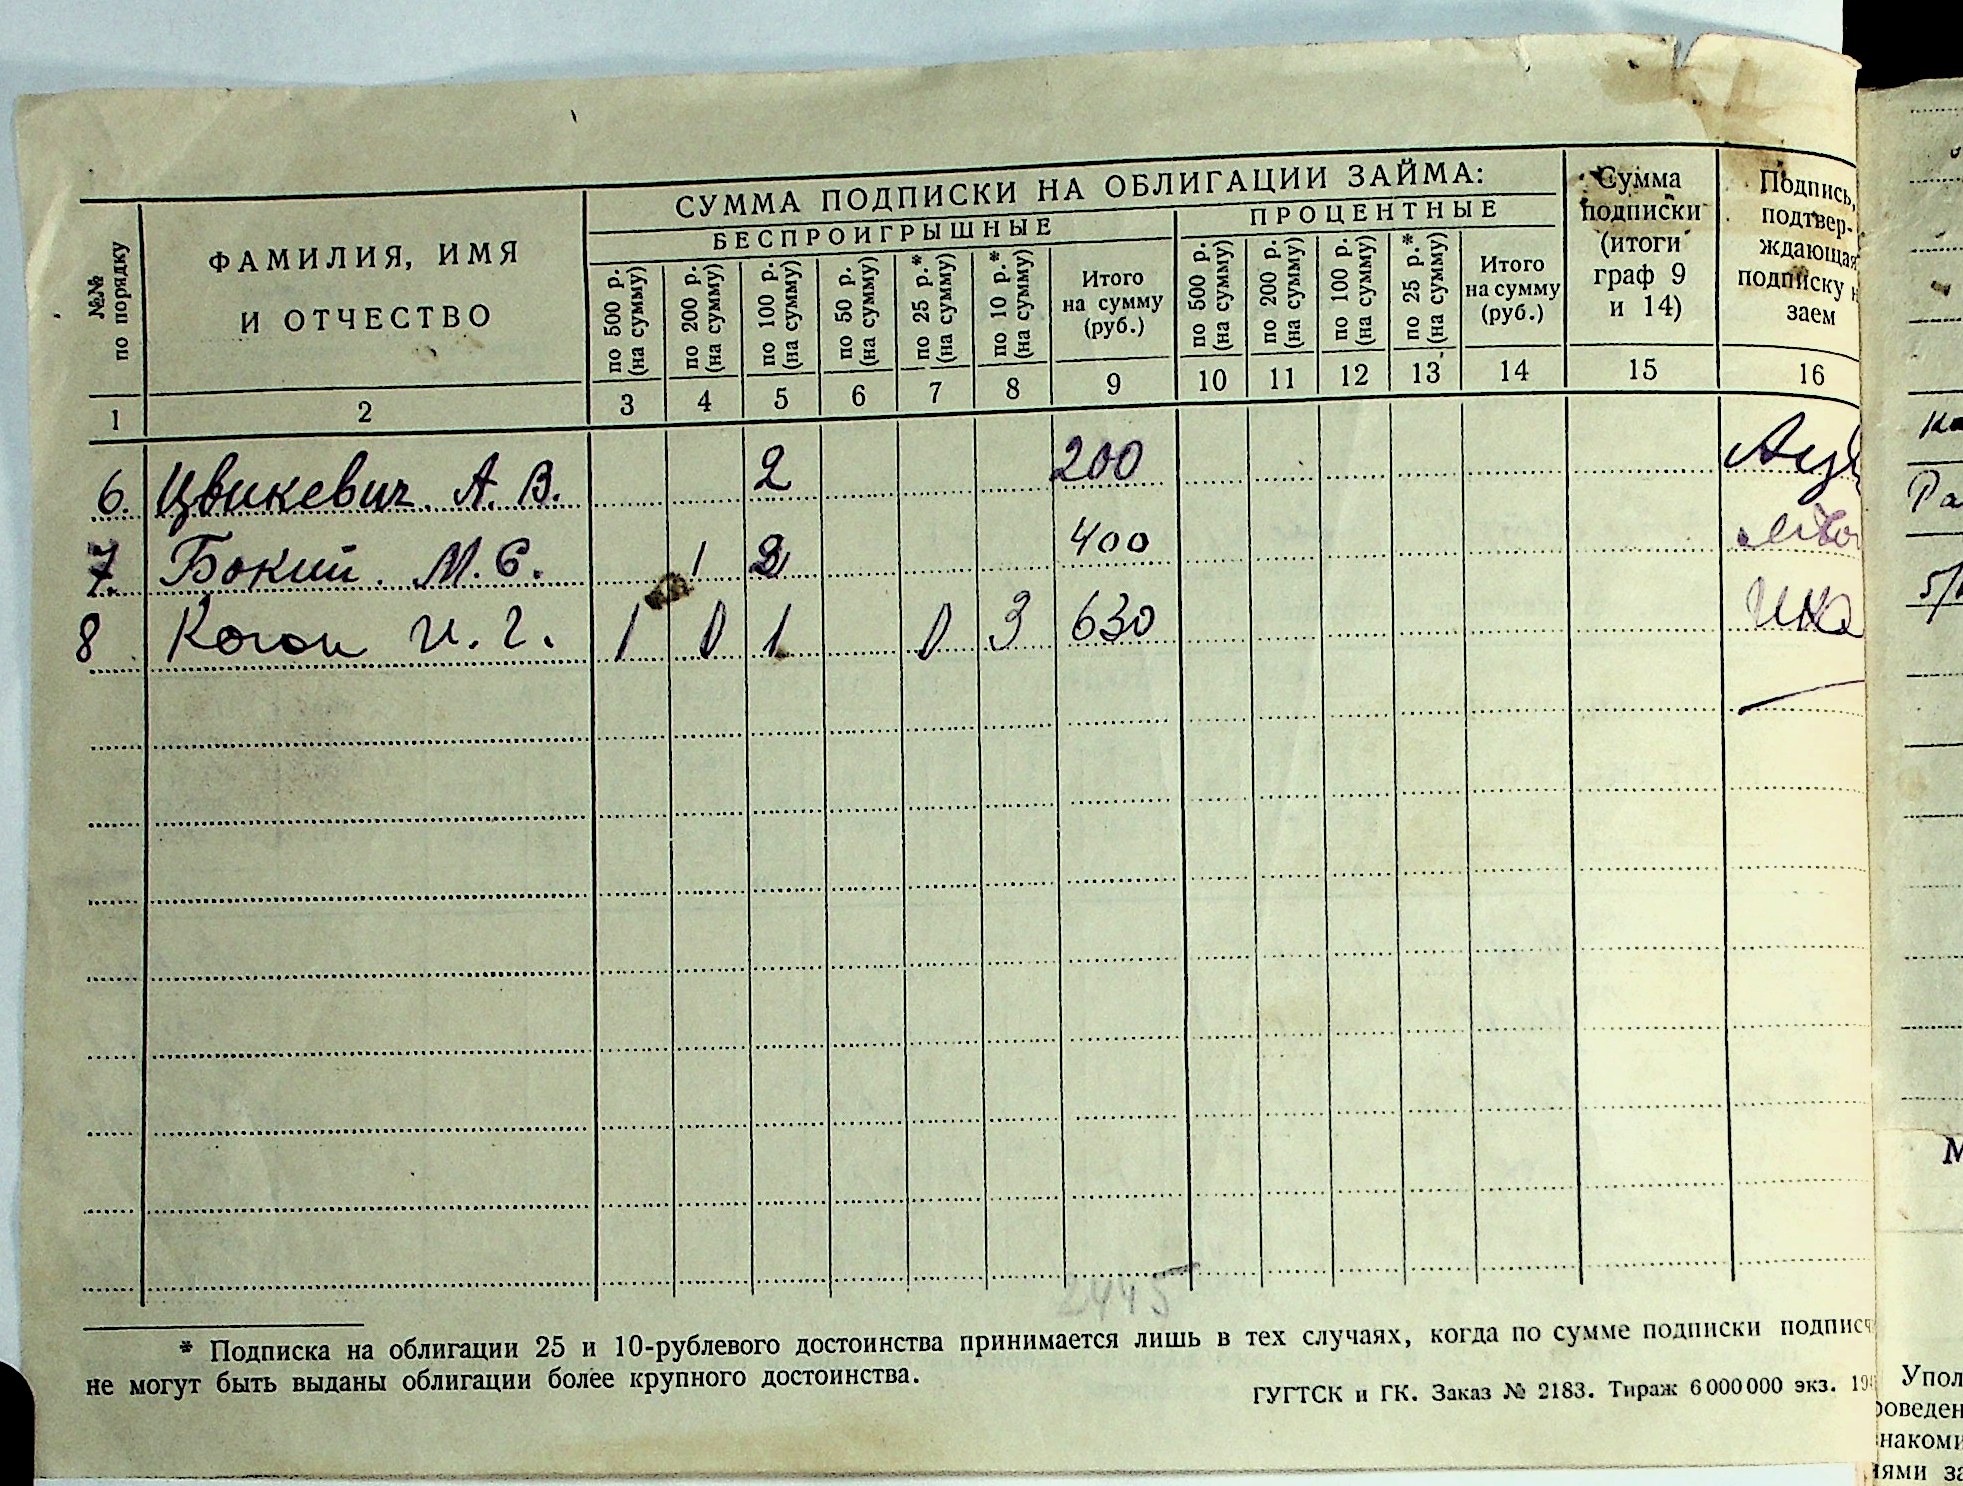 СУММА ПОДПИСКИ НА ОБЛИГАЦИИ ЗАЙМА:
БЕСПРОИГРЫШНЫЕ
ПРОЦЕНТНЫЕ
№№
по порядку
ФАМИЛИЯ, ИМЯ
И ОТЧЕСТВО
по 500 р.
(на сумму)
по 200 р.
(на сумму)
по 100 р.
(на сумму)
по 50 р.
(на сумму)
по 25 р.*
(на сумму)
по 10 р.*
(на сумму)
Итого
на сумму
(руб.)
по 500 р.
(на сумму)
по 200 р.
(на сумму)
по 100 р.
(на сумму)
по 25 р.*
(на сумму)
Итого
на сумму
(руб.)
Сумма
подписки
(итоги
граф 9
и 14)
Подпись,
подтвер-
ждающая
подписку
заем
1 2 3 4 5 6 7 8 9 10 11 12 13 14 15 16
6. Цвикевич А. В. 2 200
7. Бокий М. С. 1 2 400
8 Коган И. Г. 1 0 1 0 3 630
2445
* Подписка на облигации 25 и 10-рублевого достоинства принимается лишь в тех случаях, когда по сумме подписки
не могут быть выданы облигации более крупного достоинства.
ГУГТСК и ГК. Заказ № 2183. Тираж 6 000 000 экз.